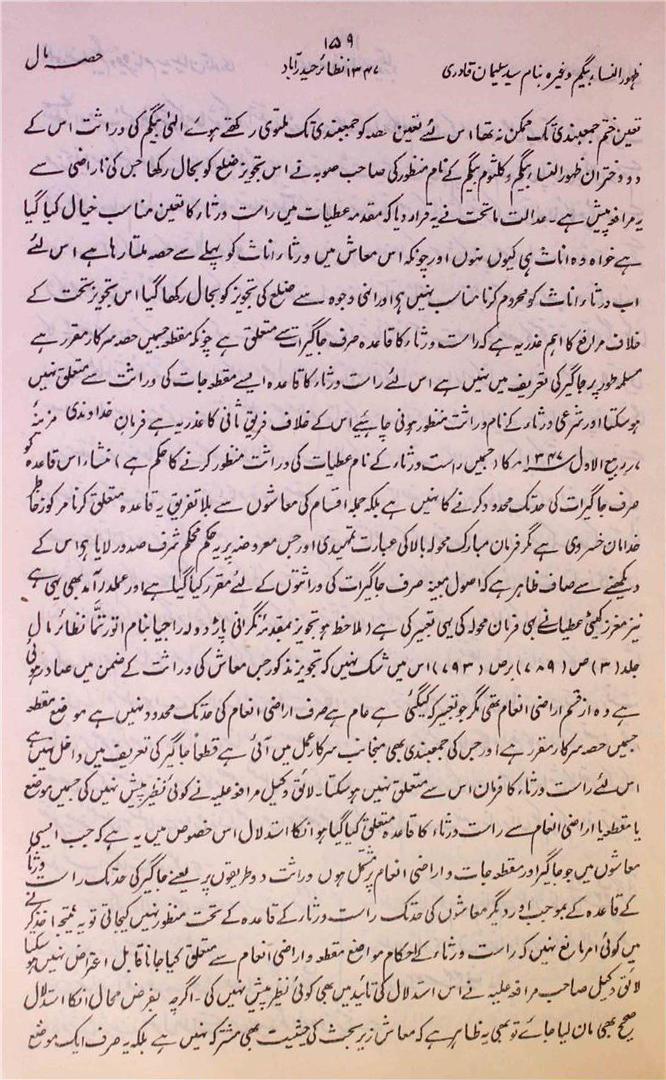 ۱۵۹
ظہور النساء بیگم وغیرہ بنام سید سلیمان قادری ۱۳۴۷ نظائر حیدرآباد حصہ مال
تعین ختم جمعبندی تک ممکن نہ تھا اس لئے تعین حصہ کو جمعبندی تک ملتوی رکھتے ہوئے النی بیگم کی وراثت اس کے
دو دختران ظہور النساء بیگم و کلثوم بیگم کے نام منظور کی صاحب صوبہ نے اس تجویز ضلع کو بحال رکھا جس کی ناراضی سے
یہ مرافعہ پیش ہے۔ عدالت ماتحت نے یہ قرار دیا کہ مقدمہ عطیات میں راست ورثاء کا تعین مناسب خیال کیا گیا
ہے خواہ وہ اناث ہی کیوں نہوں اور چونکہ اس معاش میں ورثاء اناث کو پہلے سے حصہ ملتا رہا ہے اس لئے
اب ورثاء اناث کو محروم کرنا مناسب نہیں ہے اور انہی وجوہ سے ضلع کی تجویز کو بحال رکھا گیا اس تجویز تحت کے
خلاف مرافع کا اہم عذر یہ ہے کہ راست ورثاء کا قاعدہ صرف جاگیرات سے متعلق ہے چونکہ مقطعہ جسمیں حصہ سرکار مقرر ہے
مسلمہ طور پر جاگیر کی تعریف میں نہیں ہے اس لئے راست ورثاء کا قاعدہ ایسے مقطعہ جات کی وراثت سے متعلق نہیں
ہوسکتا اور شرعی ورثاء کے نام وراثت منظور ہونی چاہئے اس کے خلاف فریق ثانی کا عذر یہ ہے فرمان خداوندی مزینہ
۷؍ ربیع الاول ۱۳۴۷ھ کا (جسمیں راست ورثاء کے نام عطیات کی وراثت منظور کرنے کا حکم ہے) منشاء اس قاعدہ کو
صرف جاگیرات کی حد تک محدود کرنے کا نہیں ہے بلکہ جملہ اقسام کی معاشوں سے بلا تفریق یہ قاعدہ متعلق کرنا مرکوز خاطر
خدامان خسروی ہے مگر فرمان مبارک محولہ بالا کی عبارت تمہیدی اور جس معروضہ پر یہ حکم محکم شرف صدور لایا ہے اس کے
دیکھنے سے صاف ظاہر ہے کہ اصول مبینہ صرف جاگیرات کی وراثتوں کے لئے مقرر کیا گیا ہے اور عملدرآمد بھی یہی ہے
نیز معزز کمیٹی عطیات نے بھی فرمان محولہ کی یہی تعبیر کی ہے (ملاحظہ ہو تجویز بمقدمہ نگرانی بنام نظائر مال
جلد (۳) ص (۷۸۹) برص (۷۹۳) اس میں شک نہیں کہ تجویز مذکور جس معاش کی وراثت کے ضمن میں صادر ہوئی
ہے وہ از قسم اراضی انعام تھی مگر جو تعبیر کہ کیگئی ہے عام ہے صرف اراضی انعام کی حد تک محدود نہیں ہے موضع مقطعہ
جسمیں حصہ سرکار مقرر ہے اور جس کی جمعبندی بھی منجانب سرکار عمل میں آتی ہے قطعاً جاگیر کی تعریف میں داخل نہیں ہے
اس لئے راست ورثاء کا فرمان اس سے متعلق نہیں ہوسکتا۔ لائق وکیل مرافعہ علیہ نے کوئی نظیر پیش نہیں کی جسمیں موضع
یا مقطعہ یا اراضی انعام سے راست ورثاء کا قاعدہ متعلق کیا گیا ہو انکا استدلال اس خصوص میں یہ ہے کہ جب ایسی
معاشوں میں جو جاگیر اور مقطعہ جات و اراضی انعام پر مشتمل ہوں وراثت دو طریقوں پر یعنے جاگیر کی حد تک راست ورثاء
کے قاعدہ کے بموجب اور دیگر معاشوں کی حد تک راست ورثاء کے قاعدہ کے تحت منظور نہیں کیجاتی تو یہ نتیجہ اخذ کرنے
میں کوئی امر مانع نہیں کہ راست ورثاء کے احکام مواضع مقطعہ و اراضی انعام سے متعلق کیا جانا قابل اعتراض نہیں ہوسکتا
لائق وکیل صاحب مرافعہ علیہ نے اس استدلال کی تائید میں بھی کوئی نظیر پیش نہیں کی۔ اگرچہ بفرض محال انکا استدلال
صحیح بھی مان لیا جائے تو بھی یہ ظاہر ہے کہ معاش زیر بحث کی حیثیت بھی مشترکہ نہیں ہے بلکہ یہ صرف ایک موضع